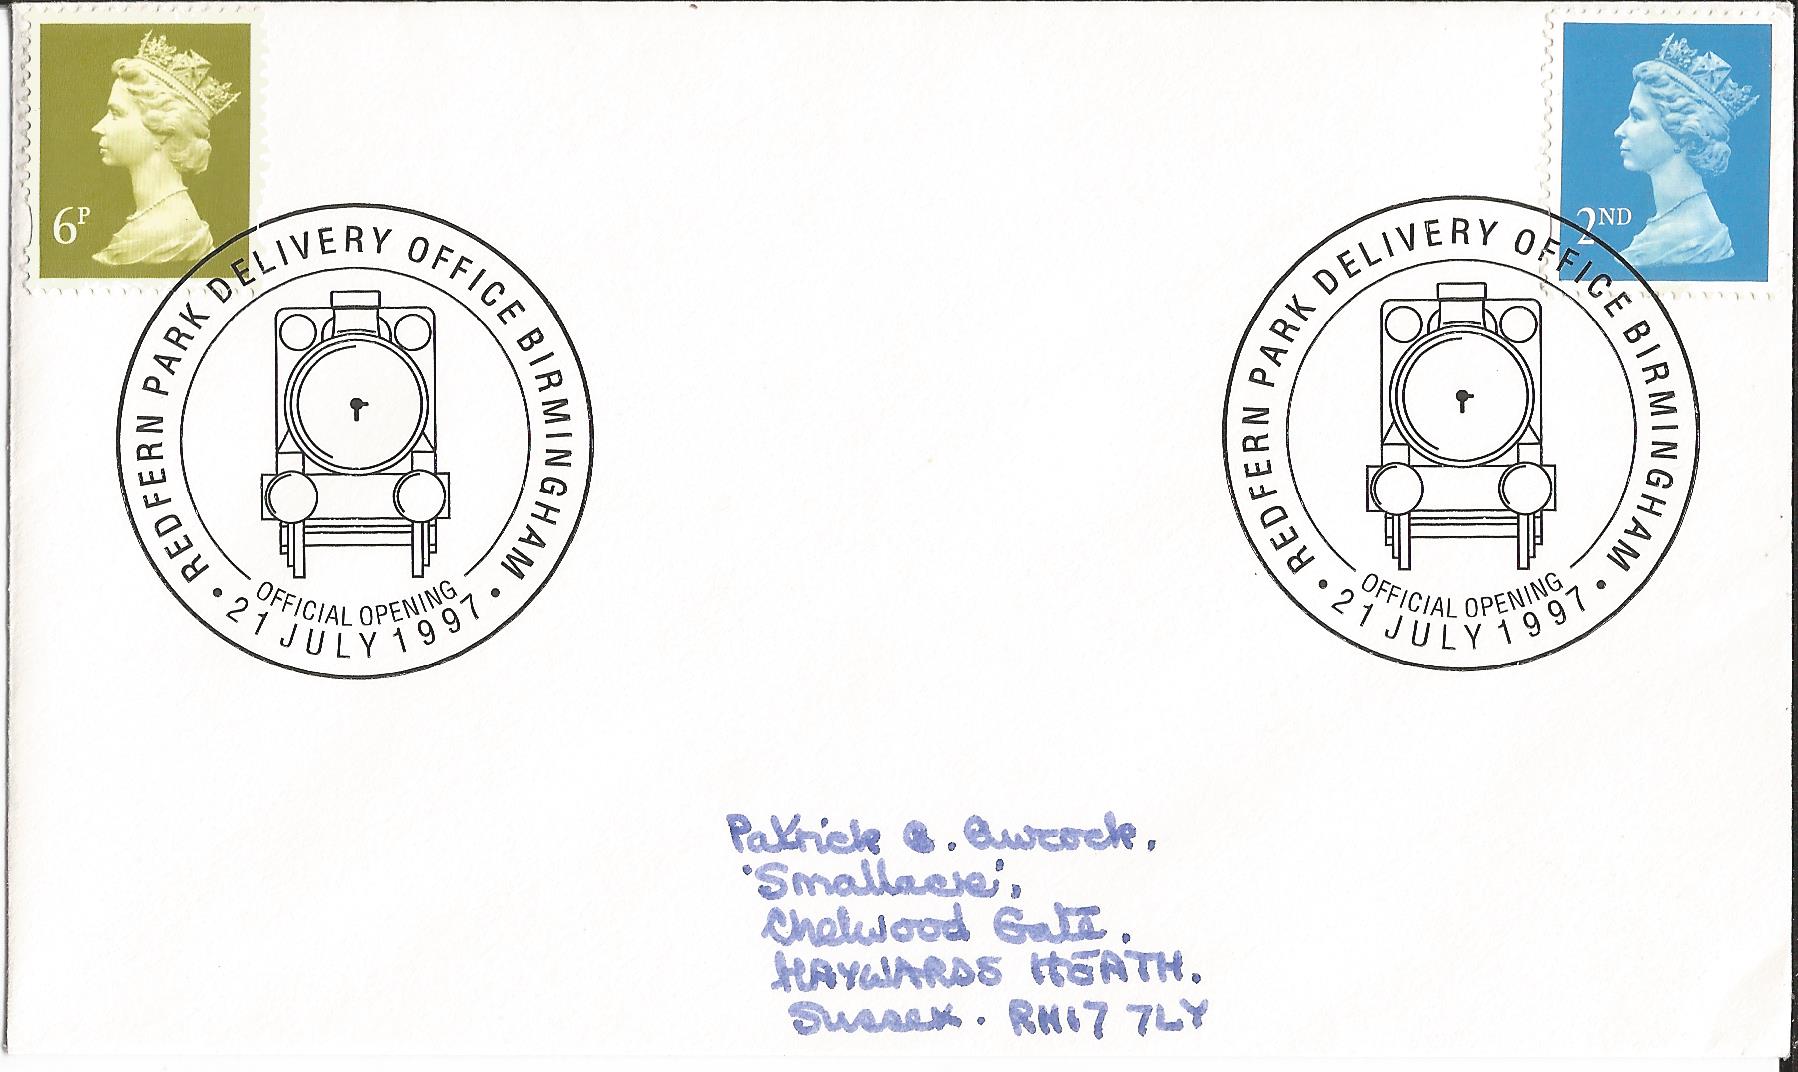 6P
2ND
REDFERN PARK DELIVERY OFFICE BIRMINGHAM
OFFICIAL OPENING
• 21 JULY 1997 •
REDFERN PARK DELIVERY OFFICE BIRMINGHAM
OFFICIAL OPENING
• 21 JULY 1997 •
Patrick . Awcock.
'Smallacre',
Chelwood Gate.
HAYWARDS HEATH.
Sussex. RH17 7LY